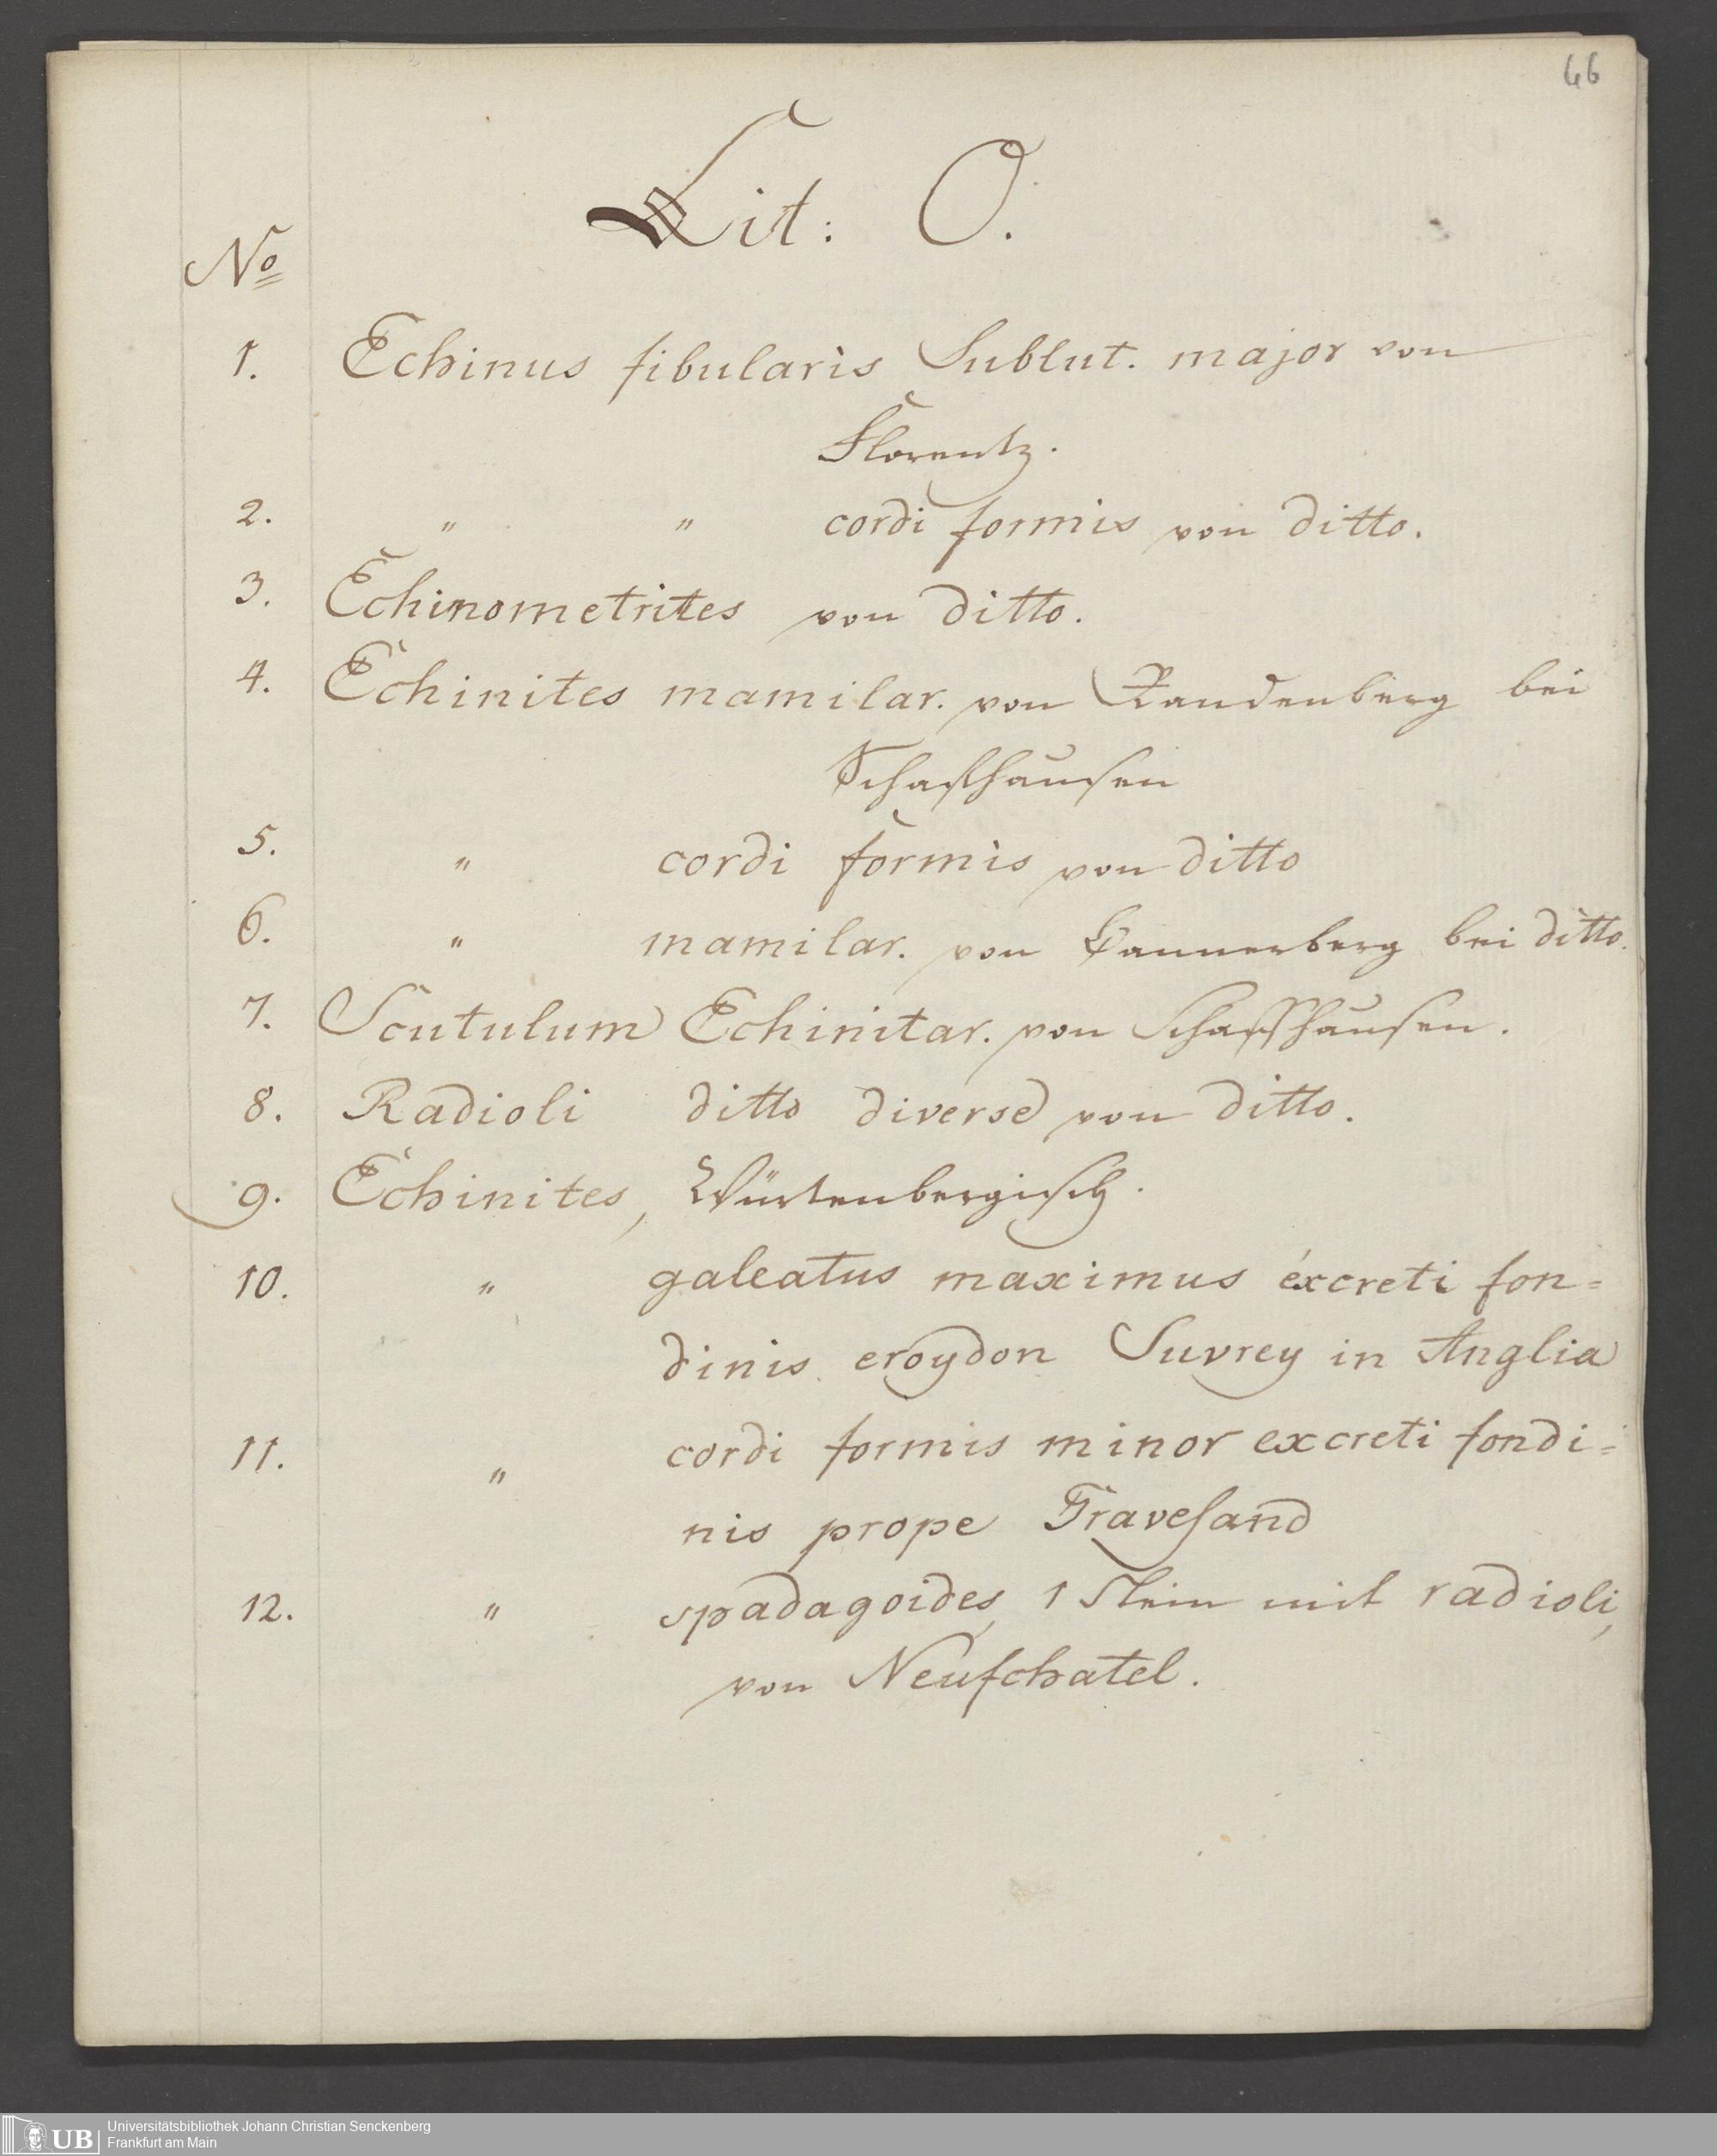 46
Lit: O.
No
1. Echinus fibularis Sublut. major von
Florentz.
2. " " cordi formis von ditto.
3. Echinometrites von ditto.
4. Echinites mamilar. von Randenberg bei
Schafhausen
5. " cordi formis von ditto
6. " mamilar. von bei ditto.
7. Scutulum Echinitar. von Schaffhausen.
8. Radioli ditto diverse von ditto.
9. Echinites, Würtenbergisch.
10. " galeatus maximus excreti fon=
dinis eroydon Suvrey in Anglia
11. " cordi formis minor excreti fondi=
nis prope Travesand
12. " spadagoides, 1 Stein mit radioli,
von Neufchatel.
UB Universitätsbibliothek Johann Christian Senckenberg
Frankfurt am Main